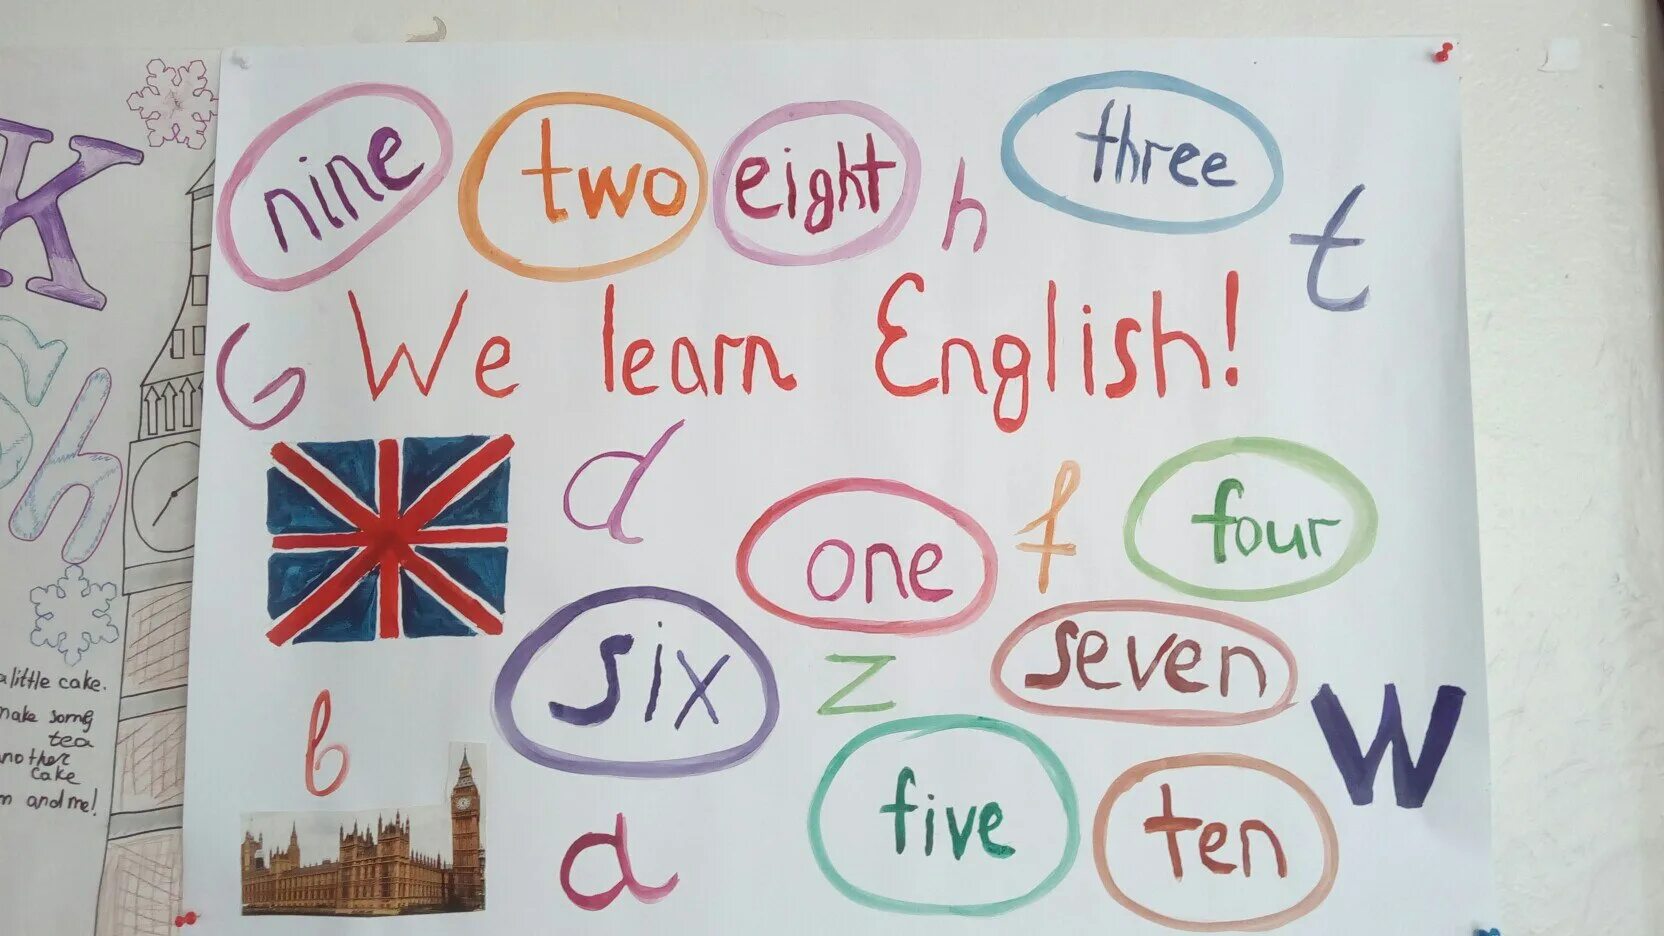 nine two eight h three
t
We learn English!
G
d
one f four
six z seven
W
b
a
five ten
K
Sh
a little cake.
make some
tea
another
cake
and me!